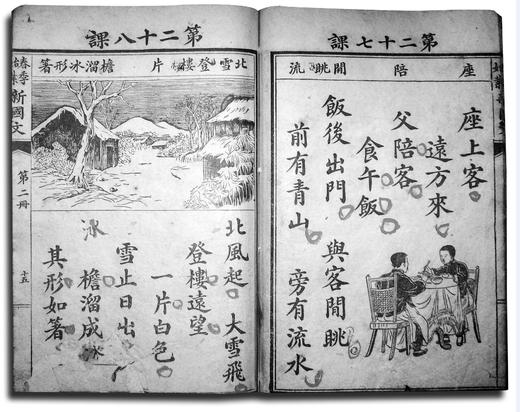 第二十七課
座 陪 閒眺 流
座上客
遠方來
父陪客
食午飯
飯後出門 與客閒眺
前有青山 旁有流水
第二十八課
北雪登樓 片 檐溜冰形箸
北風起 大雪飛
登樓遠望
一片白色
雪止日出
檐溜成冰
冰
其形如箸
春季始業 新國文 第二冊 十五